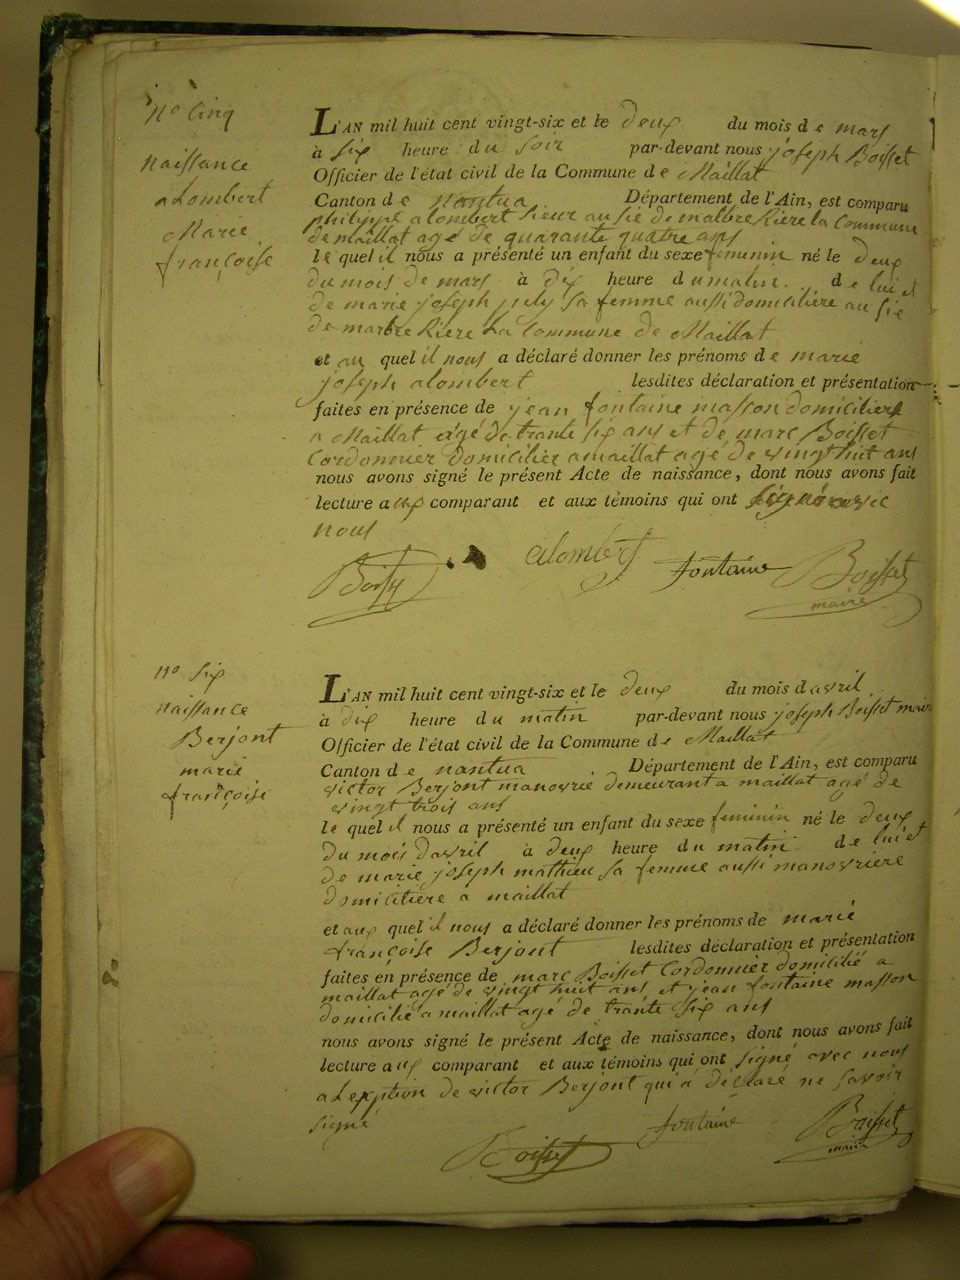 N° Cinq
Naissance
alombert
Marie
françoise
L'AN mil huit cent vingt-six et le deux du mois de mars
à six heure du soir par-devant nous joseph Boisset
Officier de l'état civil de la Commune de Maillat
Canton de nantua Département de l'Ain, est comparu
philippe alombert sieur au sie de malbre Riere la Commune
de maillat agé de quarante quatre ans
le quel il nous a présenté un enfant du sexe feminin né le deux
du mois de mars à dix heure du matin de lui et
de marie joseph july sa femme aussi domiciliere au sie
de marbre Riere La Commune de Maillat
et au quel il nous a déclaré donner les prénoms de marie
joseph alombert lesdites déclaration et présentation
faites en présence de jean fontaine masson domicilier
a Maillat agé de trante six ans et de marc Boisset
Cordonnier domicilier a maillat agé de vingt huit ans
nous avons signé le présent Acte de naissance, dont nous avons fait
lecture aux comparant et aux témoins qui ont signé avec
nous
alombert fontaine Boisset
maire
N° six
Naissance
Berjont
marie
françoise
L'AN mil huit cent vingt-six et le deux du mois d avril
à dix heure du matin par-devant nous joseph Boisset maire
Officier de l'état civil de la Commune de Maillat
Canton de nantua Département de l'Ain, est comparu
victor Berjont manovrié demeurant a maillat agé de
vingt trois ans
le quel il nous a présenté un enfant du sexe feminin né le deux
du mois d avril à deux heure du matin de lui et
de marie joseph mathieu sa femme aussi manovriere
domicitiere a maillat
et aux quel il nous a déclaré donner les prénoms de marie
françoise Berjont lesdites déclaration et présentation
faites en présence de marc Boisset Cordonnier domicilié a
maillat agé de vingt huit ans et jean fontaine masson
domicilié a maillat agé de trante six ans
nous avons signé le présent Acte de naissance, dont nous avons fait
lecture aux comparant et aux témoins qui ont signé avec nous
a Lexption de victor Berjont qui a déclaré ne savoir
signé
Boisset fontaine Boisset
maire